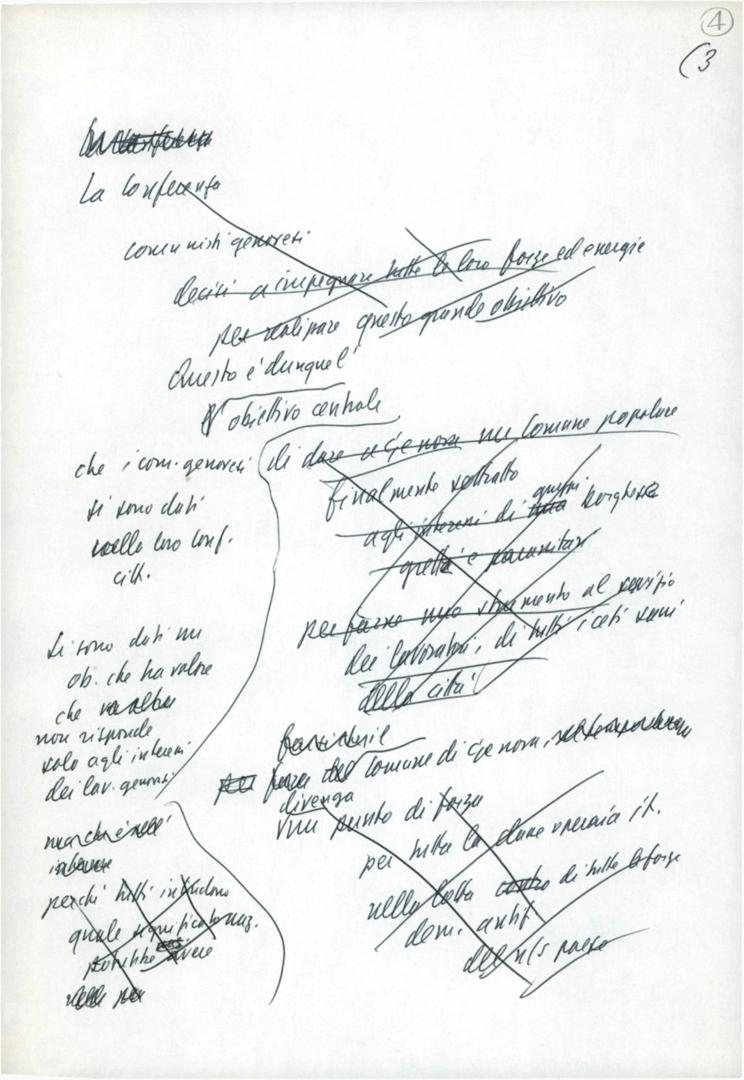 4
(3
La conferenza
comunisti genovesi
decisi a impegnare tutte le loro forze ed energie
per realizzare questo grande obiettivo
Questo è dunque l'
obiettivo centrale
che i com. genovesi
si sono dati
nella loro conf.
citt.
di dare a Genova un Comune popolare
finalmente sottratto
agli interessi di questa borghesia
gretta e parassitaria
per farne uno strumento al servizio
dei lavoratori, di tutti i ceti sani
della città
si sono dati un
ob. che ha valore
che
non risponde
solo agli interessi
dei lav. genovesi
ma che è nell'
interesse
perché tutti intendono
quale significato naz.
potrebbe avere
nelle
far sì che il
per fare del Comune di Genova,
divenga
un punto di forza
per tutta la classe operaia it.
nella lotta contro di tutte le forze
dem. antif.
del n/s paese